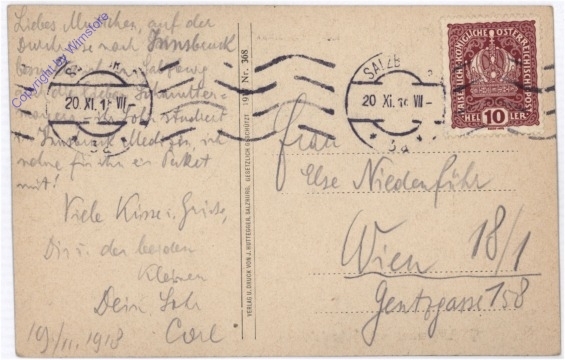 Liebes Muttchen, auf der
Durchreise nach Innsbruck
in Salzburg
die Lieben
studiert
in Innsbruck Medizin, ich
nehme für ihn ein Paket
mit!
Viele Küsse u. Grüsse,
Dir u. den beiden
Kleinen
Dein
Carl
19/11. 1918
Copyright by Wimstore
20 XI. 18 VII-
3a
SALZB
20 XI. 18 VII-
3a
KAISERLICH KÖNIGLICHE ÖSTERREICHISCHE POST
HEL 10 LER
VERLAG U. DRUCK VON J. HUTTEGGER, SALZBURG. GESETZLICH GESCHÜTZT. Nr. 368
Frau
Else Niedenführ
Wien 18/1
Gentzgasse 158